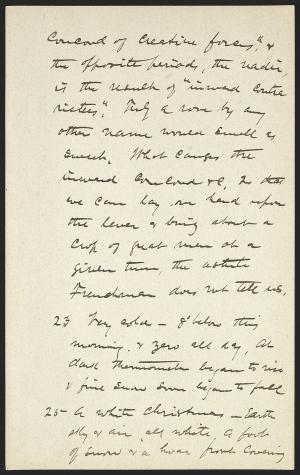 concord of creative forces", &
the opposite periods, the nadir,
is the result of "inward contra
rieties". Truly a rose by any
other name would smell as
sweet. What causes the
inward concord &c, so that
we can lay our hand upon
the lever & bring about a
crop of great men at a
given time, the astute
Frenchman does not tell us.
23 Very cold – 8° below this
morning. & zero all day, At
dark thermometer began to rise
& fine snow soon began to fall
25– A white Christmas – Earth
sky & air all white, A foot
of snow & a hoar frost covering